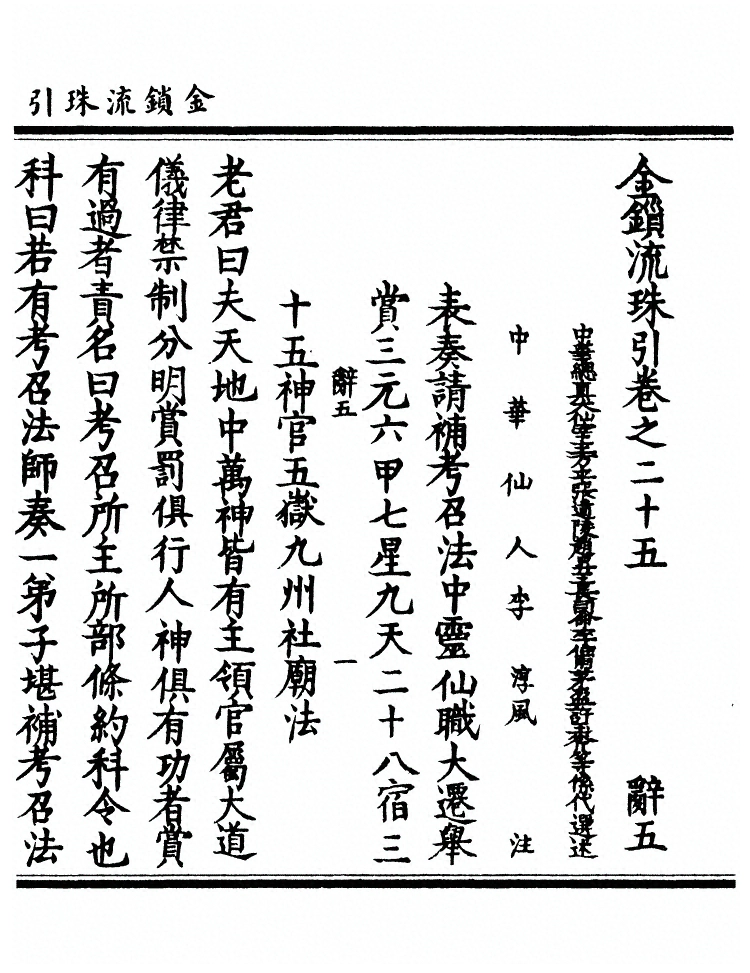 金鎖流珠引
金鎖流珠引卷之二十五 辭五
中華總真大仙宰王方平張道陵趙昇王長司命李仲甫茅盈許等係代選述
中華仙人李淳風注
表奏請補考召法中靈仙職大遷舉
賞三元六甲七星九天二十八宿三
辭五 一
十五神官五嶽九州社廟法
老君曰夫天地中萬神皆有主領官屬大道
儀律禁制分明賞罰俱行人神俱有功者賞
有過者責名曰考召所主所部條約科令也
科曰若有考召法師奏一弟子堪補考召法